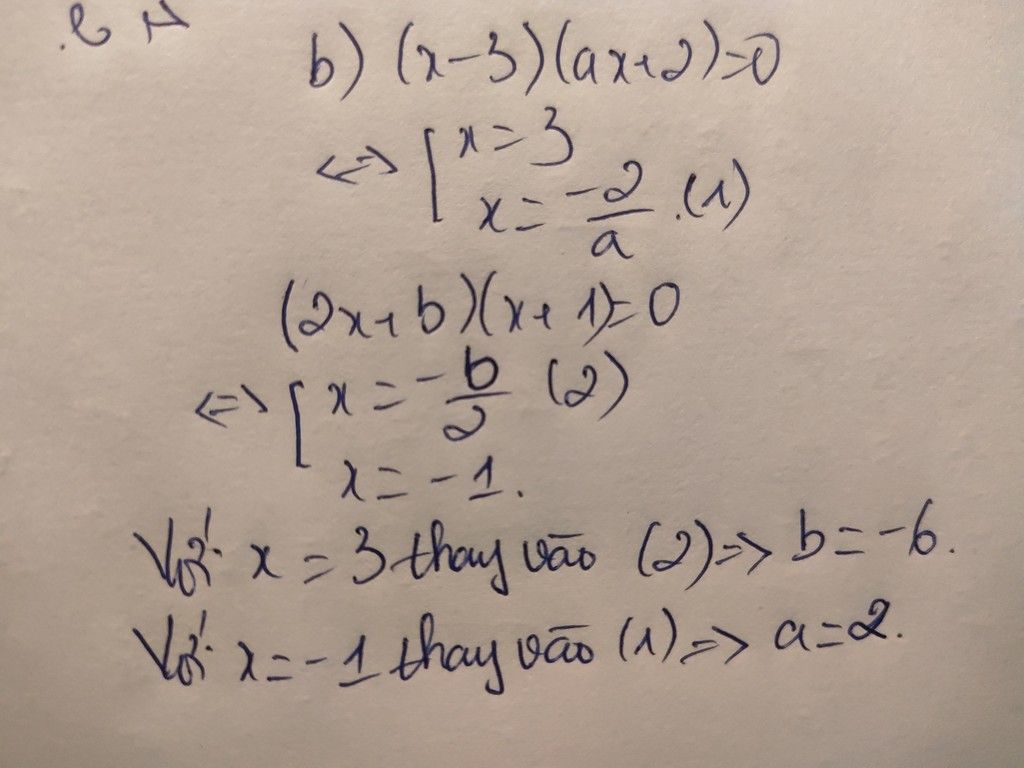 b) (x-3)(ax+2)=0
<=> [ x=3
x= -2/a .(1)
(2x+b)(x+1)=0
<=> [ x= -b/2 (2)
x= -1.
Với x=3 thay vào (2)=> b=-6.
Với x=-1 thay vào (1)=> a=2.